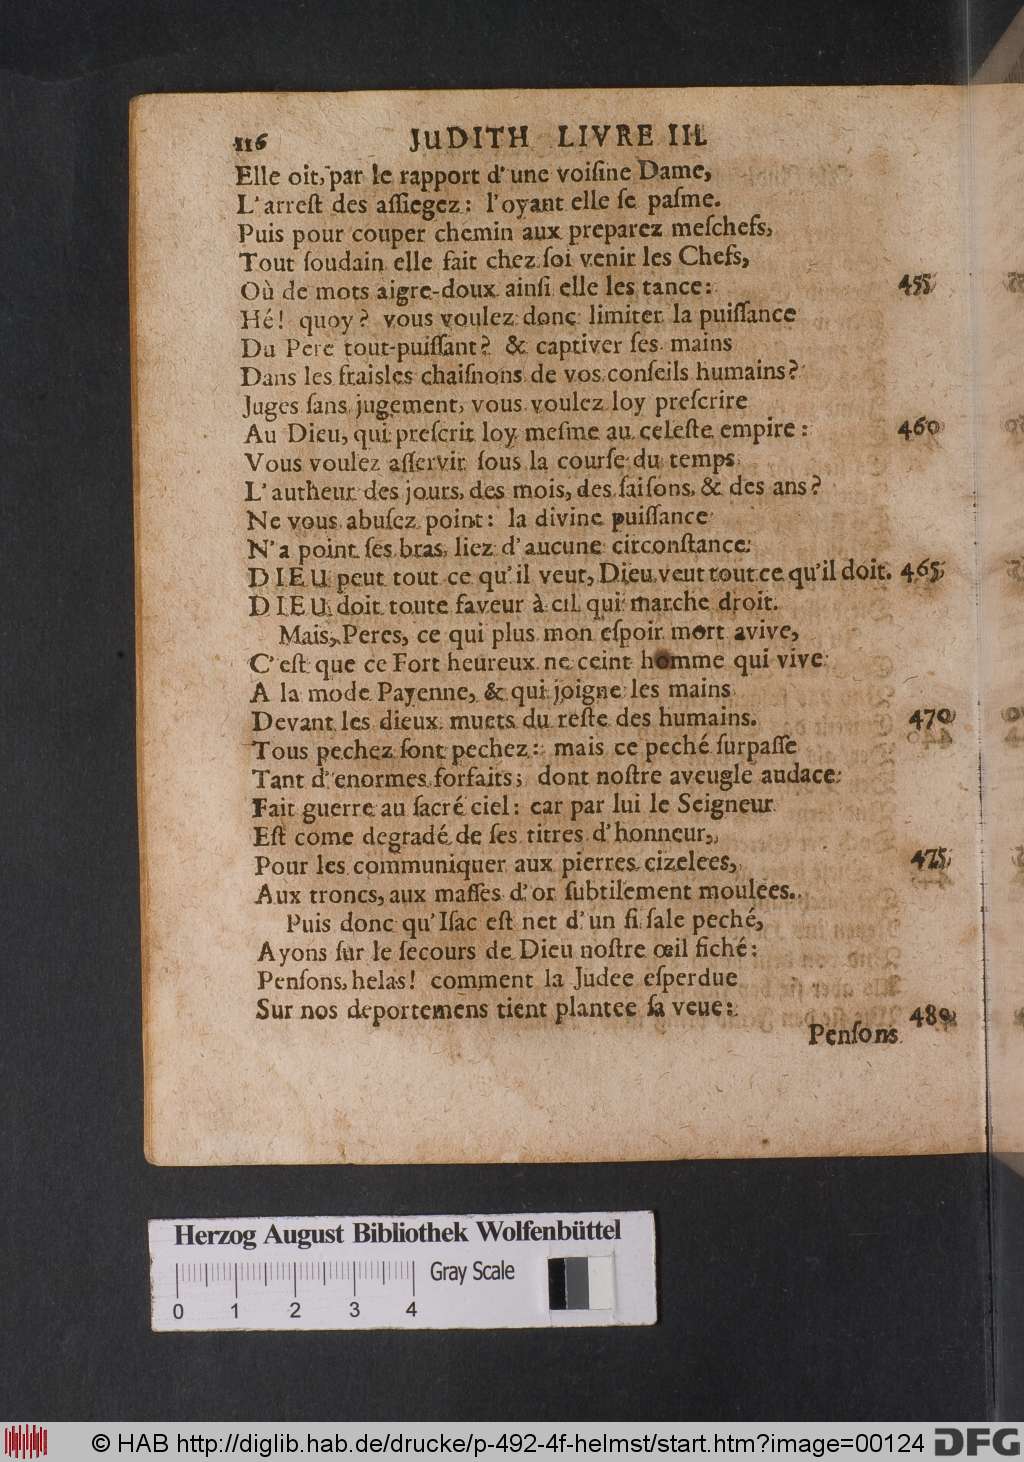 116 JUDITH LIVRE III.
Elle oit, par le rapport d'une voiſine Dame,
L'arreſt des aſſiegez: l'oyant elle ſe paſme.
Puis pour couper chemin aux preparez meſchefs,
Tout ſoudain elle fait chez ſoi venir les Chefs,
Où de mots aigre-doux ainſi elle les tance: 455
Hé! quoy? vous voulez donc limiter la puiſſance
Du Pere tout-puiſſant? & captiver ſes mains
Dans les fraisles chaiſnons de vos conſeils humains?
Juges ſans jugement, vous voulez loy preſcrire
Au Dieu, qui preſcrit loy meſme au celeſte empire: 460
Vous voulez aſſervir ſous la courſe du temps
L'autheur des jours, des mois, des ſaiſons, & des ans?
Ne vous abuſez point: la divine puiſſance
N'a point ſes bras liez d'aucune circonſtance:
DIEU peut tout ce qu'il veut, Dieu veut tout ce qu'il doit. 465
DIEU doit toute faveur à cil qui marche droit.
Mais, Peres, ce qui plus mon eſpoir mort avive,
C'eſt que ce Fort heureux ne ceint homme qui vive
A la mode Payenne, & qui joigne les mains
Devant les dieux muets du reſte des humains. 470
Tous pechez ſont pechez: mais ce peché ſurpaſſe
Tant d'enormes forfaits; dont noſtre aveugle audace
Fait guerre au ſacré ciel: car par lui le Seigneur
Eſt come degradé de ſes titres d'honneur,
Pour les communiquer aux pierres cizelees, 475
Aux troncs, aux maſſes d'or ſubtilement moulees.
Puis donc qu'Iſac eſt net d'un ſi ſale peché,
Ayons ſur le ſecours de Dieu noſtre œil fiché:
Penſons, helas! comment la Judee eſperdue
Sur nos deportemens tient plantee ſa veue: 480
Penſons
Herzog August Bibliothek Wolfenbüttel
Gray Scale
0 1 2 3 4
© HAB http://diglib.hab.de/drucke/p-492-4f-helmst/start.htm?image=00124 DFG